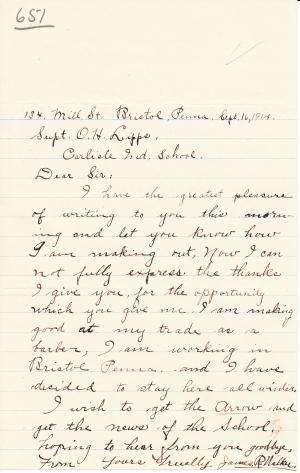 651
134. Mill St. Bristol, Penna. Sept. 16, 1914.
Supt. O. H. Lipps.
Carlisle Ind. School.
Dear Sir:
I have the greatest pleasure
of writing to you this morn-
ing and let you know how
I am making out, Now I can
not fully express the thanks
I give you, for the opportunity
which you give me. I am making
good at my trade as a
barber, I am working in
Bristol Penna. and I have
decided to stay here all winter.
I wish to get the Arrow and
get the news of the School.
hoping to hear from you goodbye,
From Yours Truelly James R. Walker